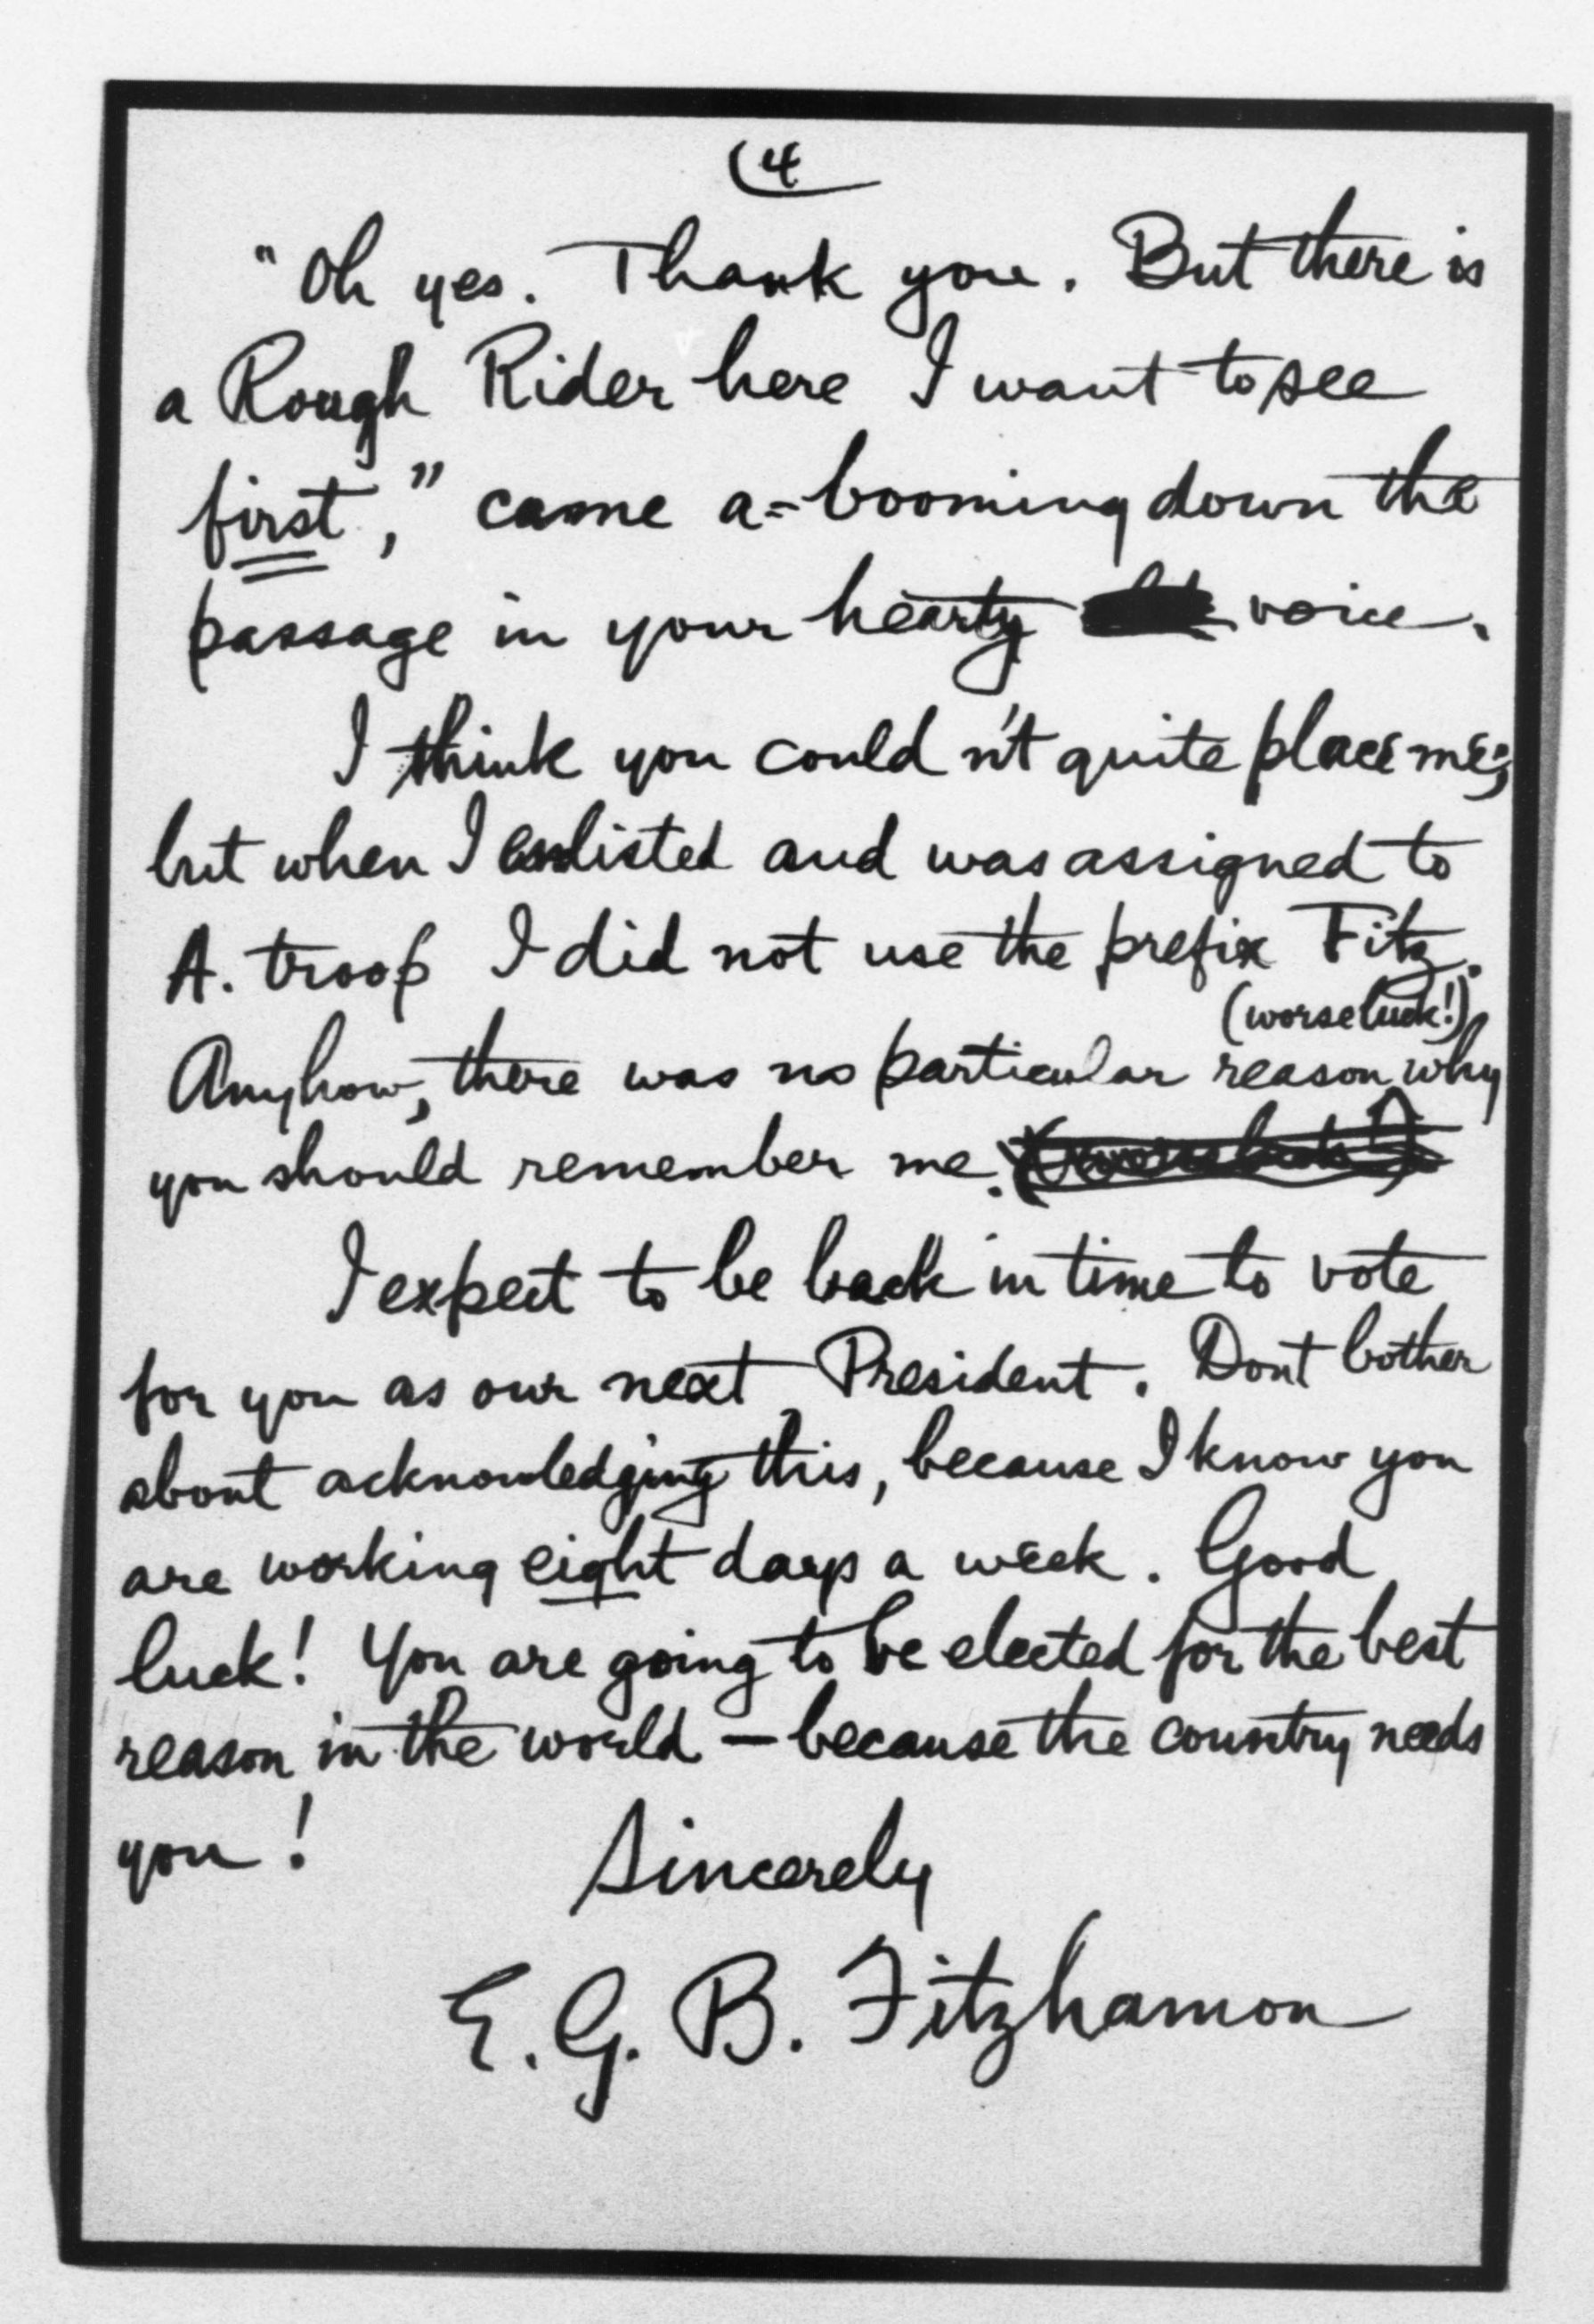 (4
"Oh yes. Thank you. But there is
a Rough Rider here I want to see
first," came a=booming down the
passage in your hearty voice.
I think you couldn't quite place me;
but when I enlisted and was assigned to
A. troop I did not use the prefix Fitz.
(worse luck!)
Anyhow, there was no particular reason why
you should remember me. (worse luck!)
I expect to be back in time to vote
for you as our next President. Dont bother
about acknowledging this, because I know you
are working eight days a week. Good
luck! You are going to be elected for the best
reason in the world — because the country needs
you!
Sincerely
E. G. B. Fitzhamon